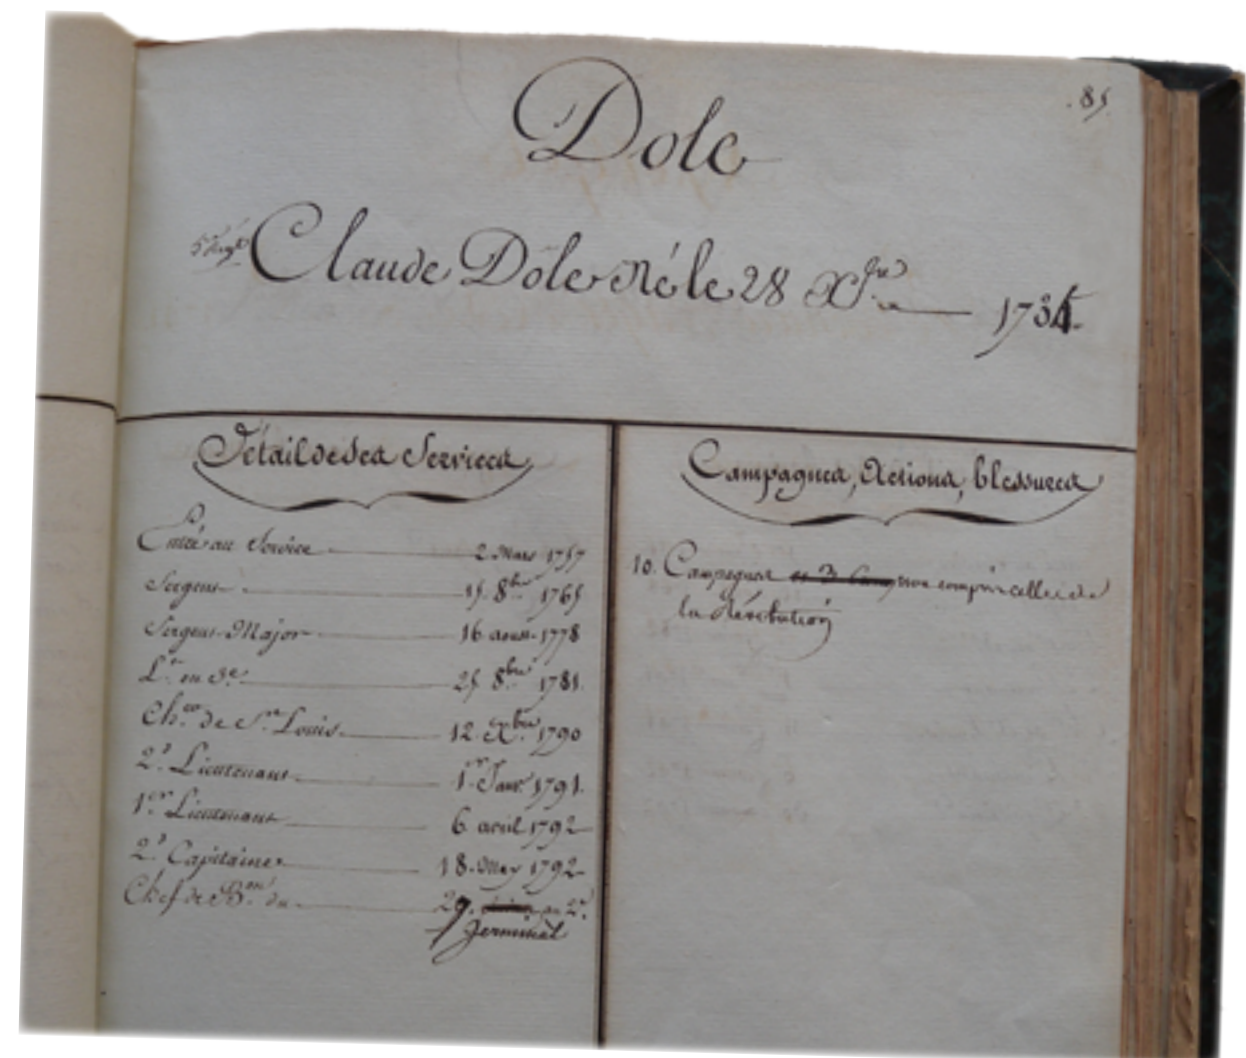 85
Dole
5e Regt Claude Dole Né le 28 Xbre 1734.
Détail de ses Services
Entré au Service 2 Mars 1757
Sergent 15. 8bre 1765
Sergent-Major 16 aoust 1778
Lt. en 3e. 25 8bre 1781.
Cher. de St. Louis. 12. Xbre 1790
2d. Lieutenant 1er Janr. 1791.
1er. Lieutenant 6 avril 1792
2d. Capitaine 18. May 1792
Chef de Bon. du 29. an 2e.
Germinal
Campagnes, Actions, blessures
10. Campagnes non compris celles de
la Révolution